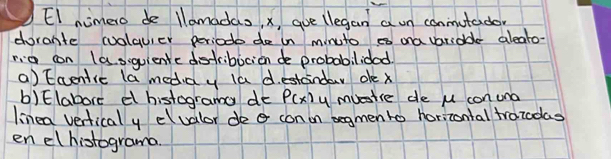 El número de llamadas, x, que llegan a un conmutador
durante cualquier periodo de un minuto es una variable aleato-
ria con la siguiente distribución de probabilidad.
a) Encentre la media y la d. estándar de x
b) Elabore el histograma de P(x) y muestre de μ con una
línea vertical y el valor de σ con un segmento horizontal trazadas
en el histograma.